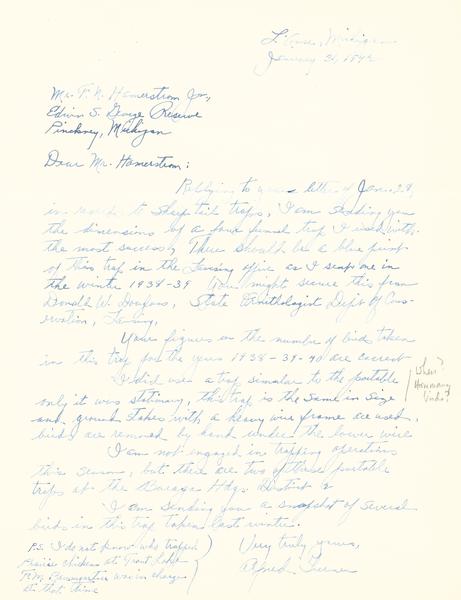 L'Anse, Michigan
January 31, 1942
Mr. F. N. Hamerstrom Jr.,
Edwin S. George Reserve
Pinckney, Michigan
Dear Mr. Hamerstrom:
Replying to your letter of Jan. 28,
in regards to sharp tail traps, I am sending you
the dimensions of a four funnel trap I used with
the most success. There should be a blue print
of this trap in the Lansing office as I sent one in
the winter 1938-39 You might secure this from
Donald W. Douglass, State Ornithologist Dept. of Con-
servation, Lansing,
Your figures on the number of birds taken
in this trap for the years 1938-39-40 are correct
I did use a trap similar to the portable
only it was stationary, this trap is the same in size
and ground stakes with a heavy wire frame are used,
birds are removed by hand under the lower wire
I am not engaged in trapping operations
this season, but there are two of these portable
traps at the Baraga Hdqs. District 2
I am sending you a snapshot of several
birds in this trap taken last winter.
Very truly yours,
Alfred
P.S. I do not know who trapped
Prairie chickens at Grant,
F.M. Baumgartner was in charge
at that time
When?
How many
birds?